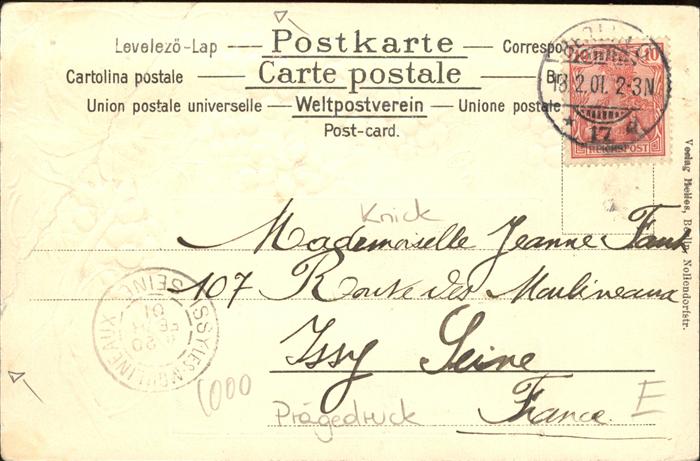 Levelező-Lap — Postkarte — Correspo
Cartolina postale — Carte postale — B
Union postale universelle — Weltpostverein — Unione postale
Post-card.
BERLIN
13.2.01. 2-3N.
* 17 d
10
REICHSPOST
Verlag Helios, Berlin, Nollendorfstr.
Knick
Mademoiselle Jeanne
107 Route des Moulineaux
Issy Seine
France
ISSY-LES-MOULINEAUX
SEINE
20
01
1000
Prägedruck
E